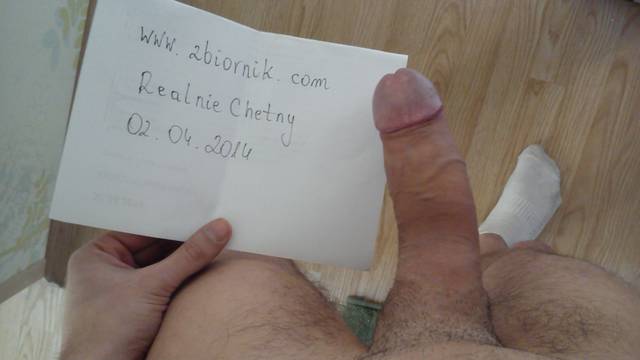 www.2biornik.com
Realnie Chetny
02.04.2014